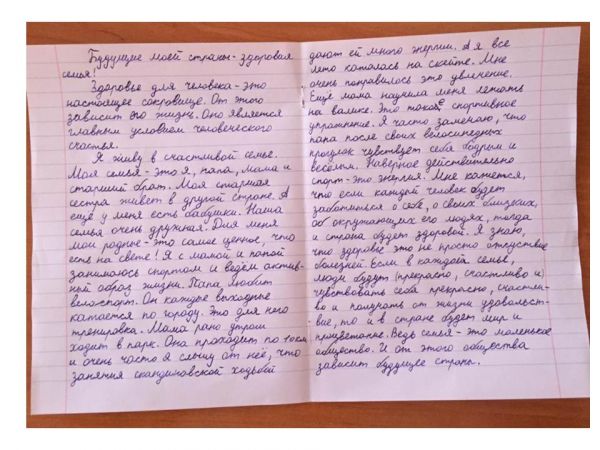 Будущие моей страны - здоровая
семья!
Здоровье для человека - это
настоящее сокровище. От этого
зависит его жизнь. Оно является
главным условием человеческого
счастья.
Я живу в счастливой семье.
Моя семья - это я, папа, мама и
старший брат. Моя старшая
сестра живет в другой стране. А
ещё у меня есть бабушки. Наша
семья очень дружная. Для меня
мои родные - это самое ценное, что
есть на свете! Я с мамой и папой
занимаюсь спортом и ведём актив-
ный образ жизни. Папа любит
велоспорт. Он каждые выходные
катается по городу. Это для него
тренировка. Мама рано утром
ходит в парк. Она проходит по 10 км
и очень часто я слышу от неё, что
занятия скандинавской ходьбой
дают ей много энергии. А я все
лето каталась на скейте. Мне
очень понравилось это увлечение.
Ещё мама научила меня лежать
на валике. Это такое спортивное
упражнение. Я часто замечаю, что
папа после своих велосипедных
прогулок чувствует себя бодрым и
весёлым. Наверное действительно
спорт - это энергия. Мне кажется,
что если каждый человек будет
заботиться о себе, о своих близких,
об окружающих его людях, тогда
и страна будет здоровой. Я знаю,
что здоровье это не просто отсутствие
болезней. Если в каждой семье,
люди будут (прекрасно, счастливо и)
чувствовать себя прекрасно, счастли-
во и получать от жизни удовольст-
вие, то и в стране будет мир и
процветание. Ведь семья - это маленькое
общество. И от этого общества
зависит будущее страны.